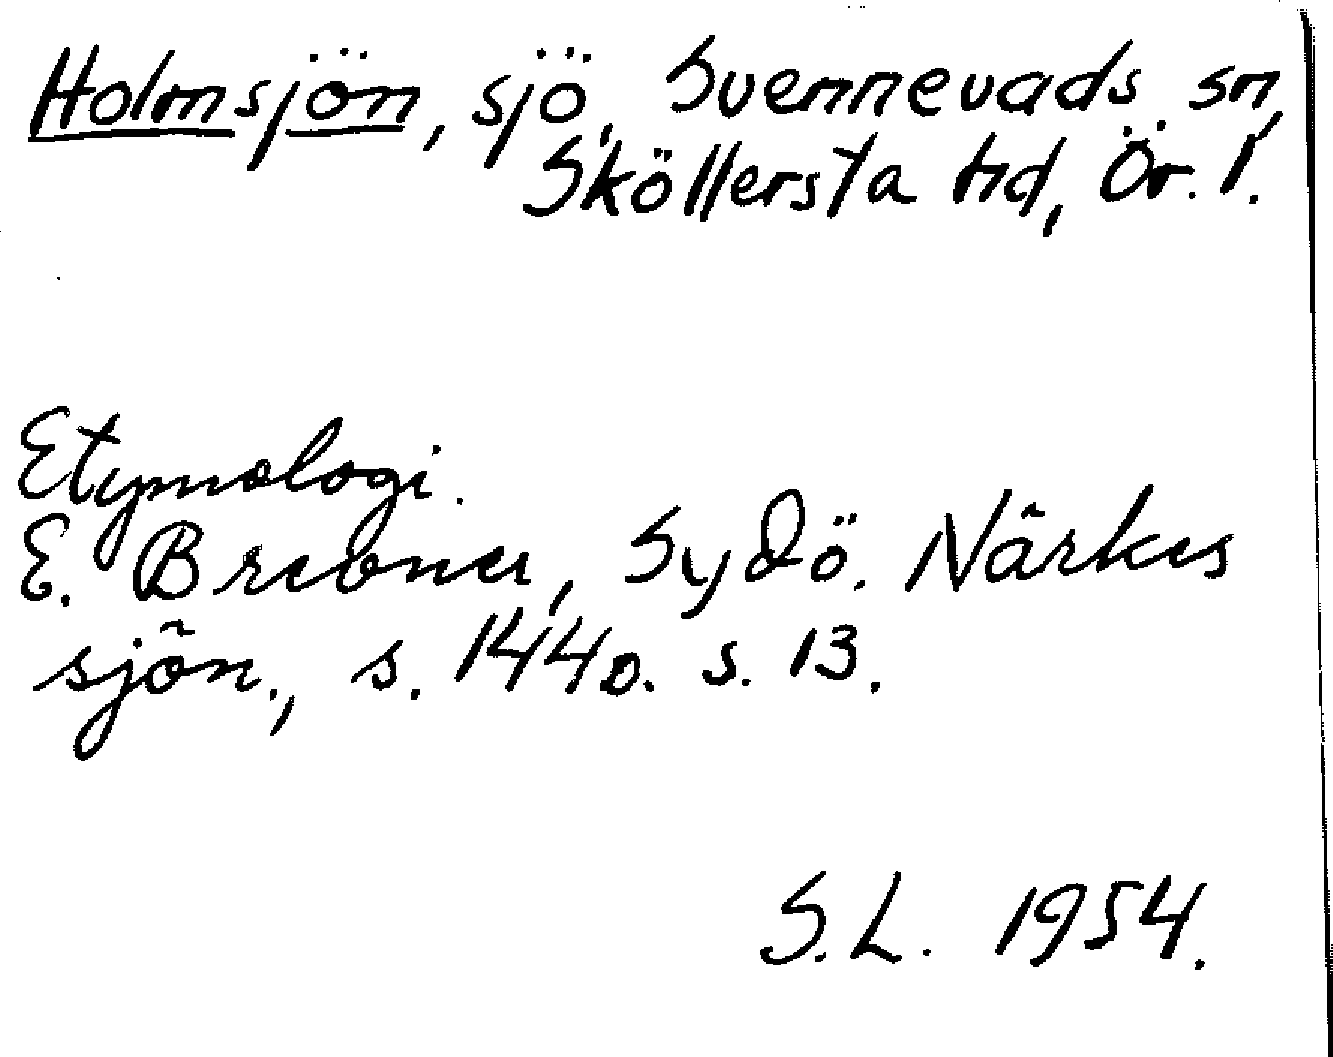 Holmsjön, sjö, Svennevads sn,
Sköllersta hd, Ör. l.
Etymologi.
E. Brevner, Sydö. Närkes
sjön., s. 144 o. s. 13.
S.L. 1954.